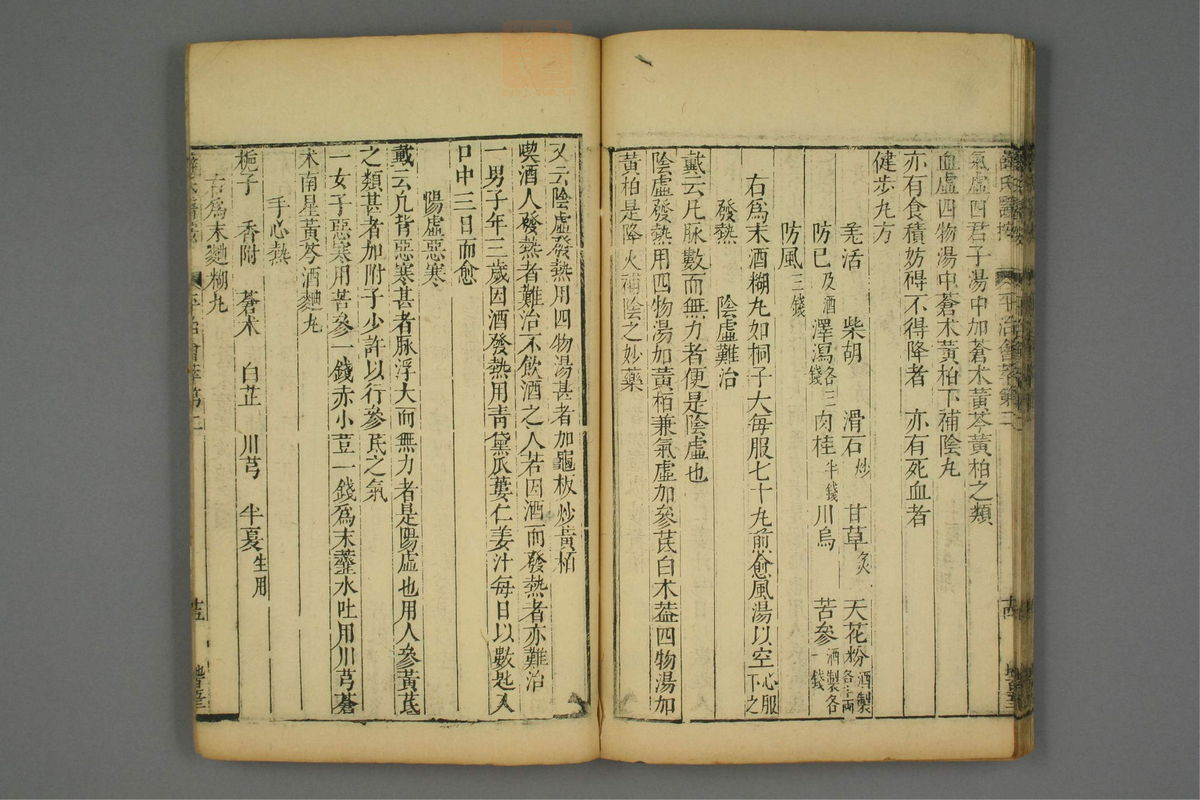 氣虛四君子湯中加蒼朮黃芩黃柏之類
血虛四物湯中蒼朮黃柏下補陰丸
亦有食積妨碍不得降者 亦有死血者
健步丸方
羌活 柴胡 滑石炒 甘草炙 天花粉酒製各半兩
防已及酒 澤瀉各三錢 肉桂半錢 川烏 苦參酒製各一錢
防風三錢
右為末酒糊丸如桐子大每服七十丸煎愈風湯以空心服下之
發熱 陰虛難治
戴云凡脉數而無力者便是陰虛也
陰虛發熱用四物湯加黃柏兼氣虛加參芪白朮葢四物湯加
黃柏是降火補陰之妙藥
又云陰虛發熱用四物湯甚者加龜板炒黃柏
喫酒人發熱者難治不飲酒之人若因酒而發熱者亦難治
一男子年三歲因酒發熱用青黛瓜蔞仁姜汁每日以數匙入
口中三日而愈
陽虛惡寒
戴云凡背惡寒甚者脉浮大而無力者是陽虛也用人參黃芪
之類甚者加附子少許以行參芪之氣
一女子惡寒用苦參一錢赤小荳一錢為末虀水吐用川芎蒼
朮南星黃芩酒麯丸
手心熱
梔子 香附 蒼朮 白芷 川芎 半夏生用
右為末麯糊丸